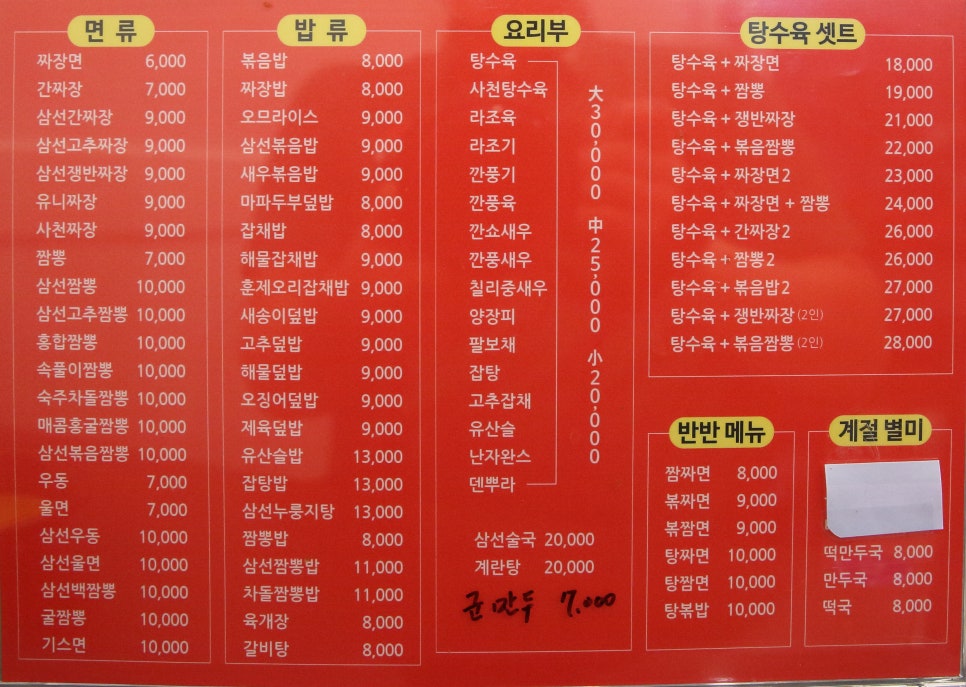 면 류
짜장면 6,000
간짜장 7,000
삼선간짜장 9,000
삼선고추짜장 9,000
삼선쟁반짜장 9,000
유니짜장 9,000
사천짜장 9,000
짬뽕 7,000
삼선짬뽕 10,000
삼선고추짬뽕 10,000
홍합짬뽕 10,000
속풀이짬뽕 10,000
숙주차돌짬뽕 10,000
매콤홍굴짬뽕 10,000
삼선볶음짬뽕 10,000
우동 7,000
울면 7,000
삼선우동 10,000
삼선울면 10,000
삼선백짬뽕 10,000
굴짬뽕 10,000
기스면 10,000
밥 류
볶음밥 8,000
짜장밥 8,000
오므라이스 9,000
삼선볶음밥 9,000
새우볶음밥 9,000
마파두부덮밥 8,000
잡채밥 8,000
해물잡채밥 9,000
훈제오리잡채밥 9,000
새송이덮밥 9,000
고추덮밥 9,000
해물덮밥 9,000
오징어덮밥 9,000
제육덮밥 9,000
유산슬밥 13,000
잡탕밥 13,000
삼선누룽지탕 13,000
짬뽕밥 8,000
삼선짬뽕밥 11,000
차돌짬뽕밥 11,000
육개장 8,000
갈비탕 8,000
요리부
탕수육
사천탕수육
라조육
라조기
깐풍기
깐풍육
깐쇼새우
깐풍새우
칠리중새우
양장피
팔보채
잡탕
고추잡채
유산슬
난자완스
덴뿌라
大30,000 中25,000 小20,000
삼선술국 20,000
계란탕 20,000
군만두 7.000
탕수육 셋트
탕수육 + 짜장면 18,000
탕수육 + 짬뽕 19,000
탕수육 + 쟁반짜장 21,000
탕수육 + 볶음짬뽕 22,000
탕수육 + 짜장면2 23,000
탕수육 + 짜장면 + 짬뽕 24,000
탕수육 + 간짜장2 26,000
탕수육 + 짬뽕2 26,000
탕수육 + 볶음밥2 27,000
탕수육 + 쟁반짜장 (2인) 27,000
탕수육 + 볶음짬뽕 (2인) 28,000
반반 메뉴
짬짜면 8,000
볶짜면 9,000
볶짬면 9,000
탕짜면 10,000
탕짬면 10,000
탕볶밥 10,000
계절 별미
떡만두국 8,000
만두국 8,000
떡국 8,000